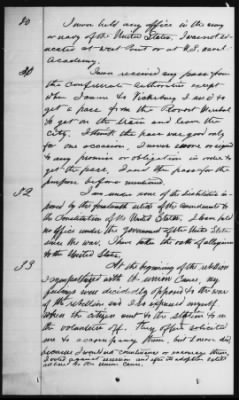 30 I never held any office in the army
or navy of the United States. I was not ed-
ucated at West Point or at U.S. naval
Academy.
I never received any pass from
the Confederate authorities except
when I came to Vicksburg I had to
get a pass from the Provost Marshal
to get on the train and leave the
city. I think the pass was good only
for one occasion. I never swore or signed
to any promise or obligation in order to
get the pass. I used the pass for the
purpose before mentioned.
52 I am under none of the disabilities im-
posed by the fourteenth article of the amendments to
the Constitution of the United States. I have held
no office under the government of the United States
since the war. I have taken the oath of allegiance
to the United States.
53 At the beginning of the rebellion
I sympathized with the union cause. My
feelings were decidedly opposed to the war
of the rebellion and I so expressed myself.
When the citizens went to the station to see
the volunteers off. They often solicited
me to accompany them, but I never did,
because I would not countenance or encourage them.
I voted against secession and after its adoption I still
adhered to the union cause.